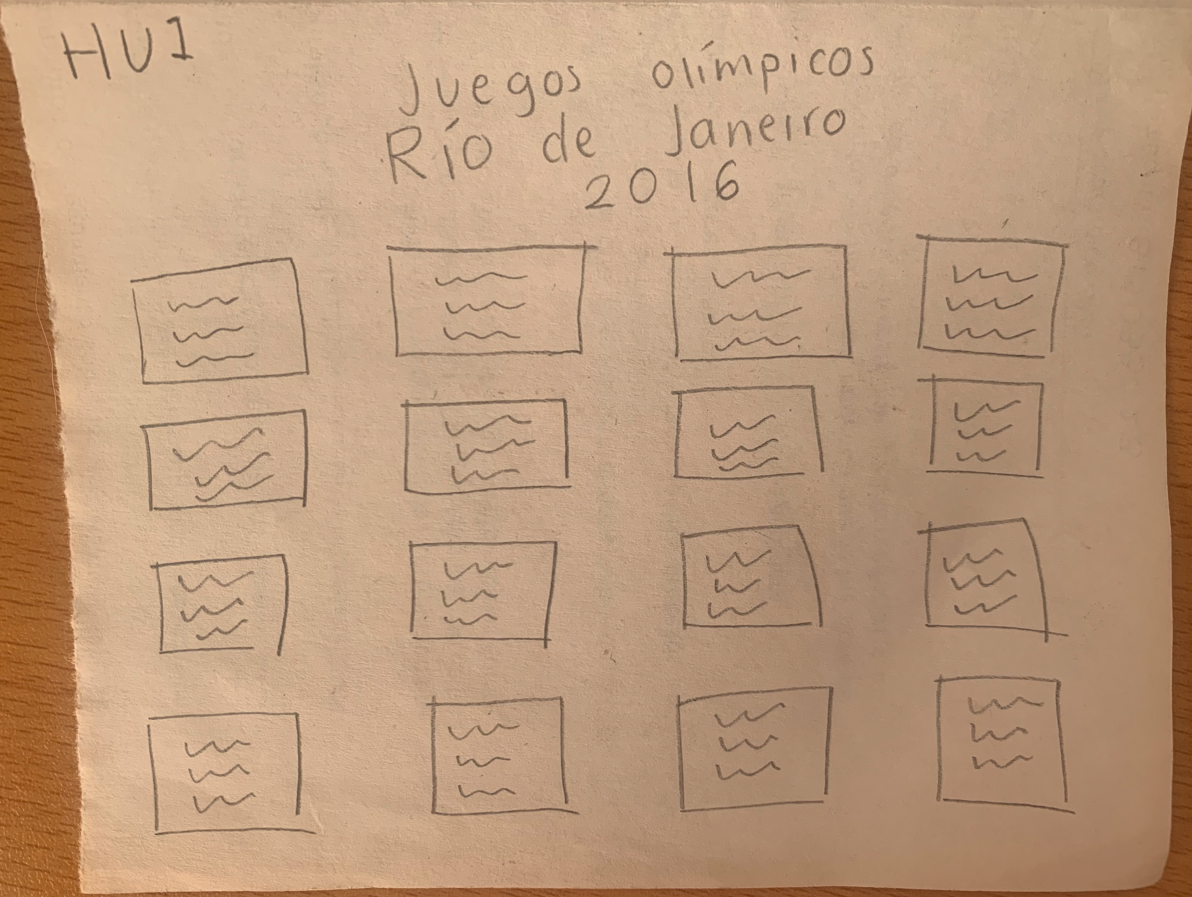 HU1
Juegos olímpicos
Río de Janeiro
2016